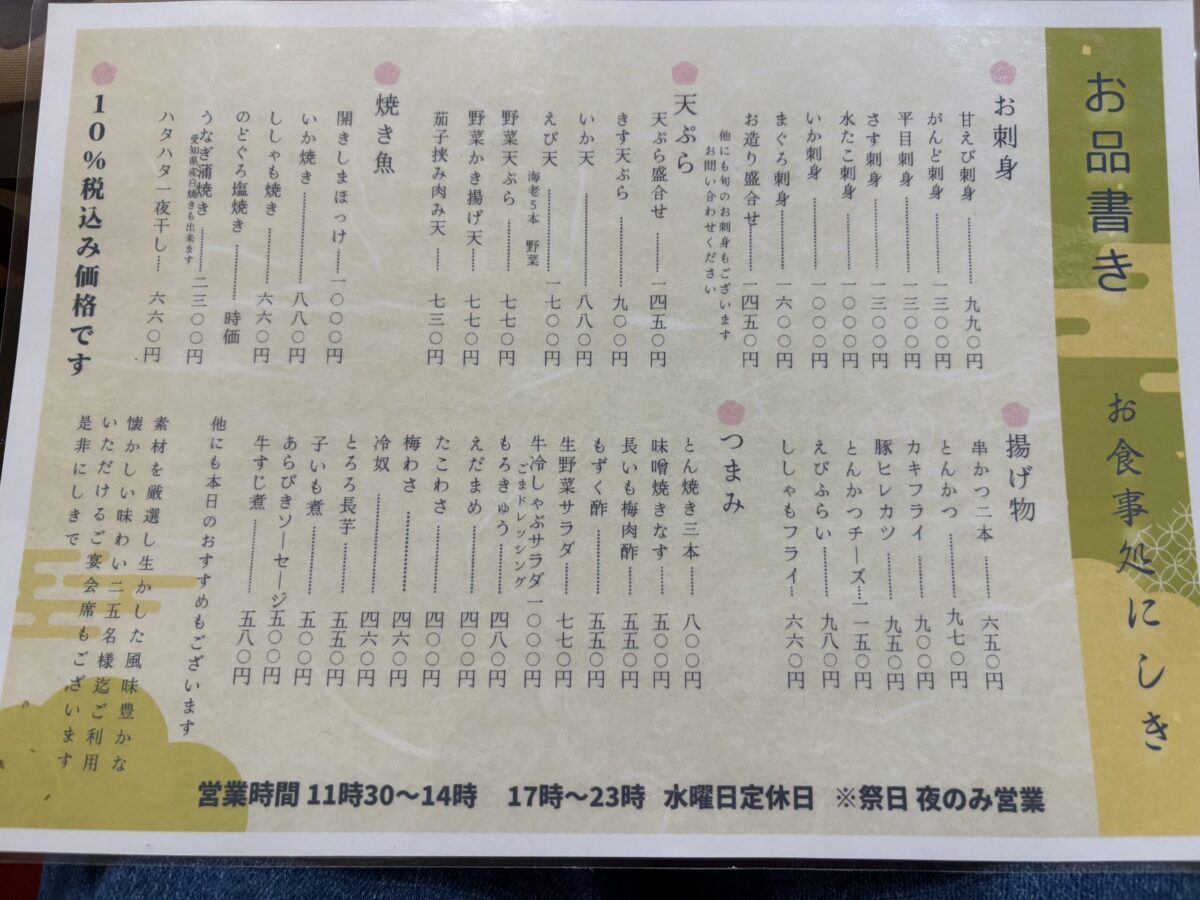 お品書き
お食事処にしき
お刺身
甘えび刺身 九九〇円
がんど刺身 一三〇〇円
平目刺身 一三〇〇円
さす刺身 一三〇〇円
水たこ刺身 一〇〇〇円
いか刺身 一〇〇〇円
まぐろ刺身 一六〇〇円
お造り盛合せ 一四五〇円
他にも旬のお刺身もございます
お問い合わせください
天ぷら
天ぷら盛合せ 一四五〇円
きす天ぷら 九〇〇円
いか天 八八〇円
えび天 一七〇〇円
海老5本 野菜
野菜天ぷら 七七〇円
野菜かき揚げ天 七七〇円
茄子挟み肉み天 七三〇円
焼き魚
開きしまほっけ 一〇〇〇円
いか焼き 八八〇円
ししゃも焼き 六六〇円
のどぐろ塩焼き 時価
うなぎ蒲焼き 二三〇〇円
愛知県産白焼きも出来ます
ハタハタ一夜干し 六六〇円
10%税込み価格です
揚げ物
串かつ二本 六五〇円
とんかつ 九七〇円
カキフライ 九〇〇円
豚ヒレカツ 九五〇円
とんかつチーズ 一一五〇円
えびふらい 九八〇円
ししゃもフライ 六六〇円
つまみ
とん焼き三本 八〇〇円
味噌焼きなす 五〇〇円
長いも梅肉酢 五五〇円
もずく酢 五五〇円
生野菜サラダ 七七〇円
牛冷しゃぶサラダ 一〇〇〇円
ごまドレッシング
もろきゅう 四八〇円
えだまめ 四〇〇円
たこわさ 四〇〇円
梅わさ 四六〇円
冷奴 四六〇円
とろろ長芋 五五〇円
子いも煮 五〇〇円
あらびきソーセージ 五〇〇円
牛すじ煮 五八〇円
他にも本日のおすすめもございます
素材を厳選し生かした風味豊かな
懐かしい味わい二五名様迄ご利用
いただけるご宴会席もございます
是非にしきで
営業時間 11時30～14時 17時～23時 水曜日定休日 ※祭日 夜のみ営業